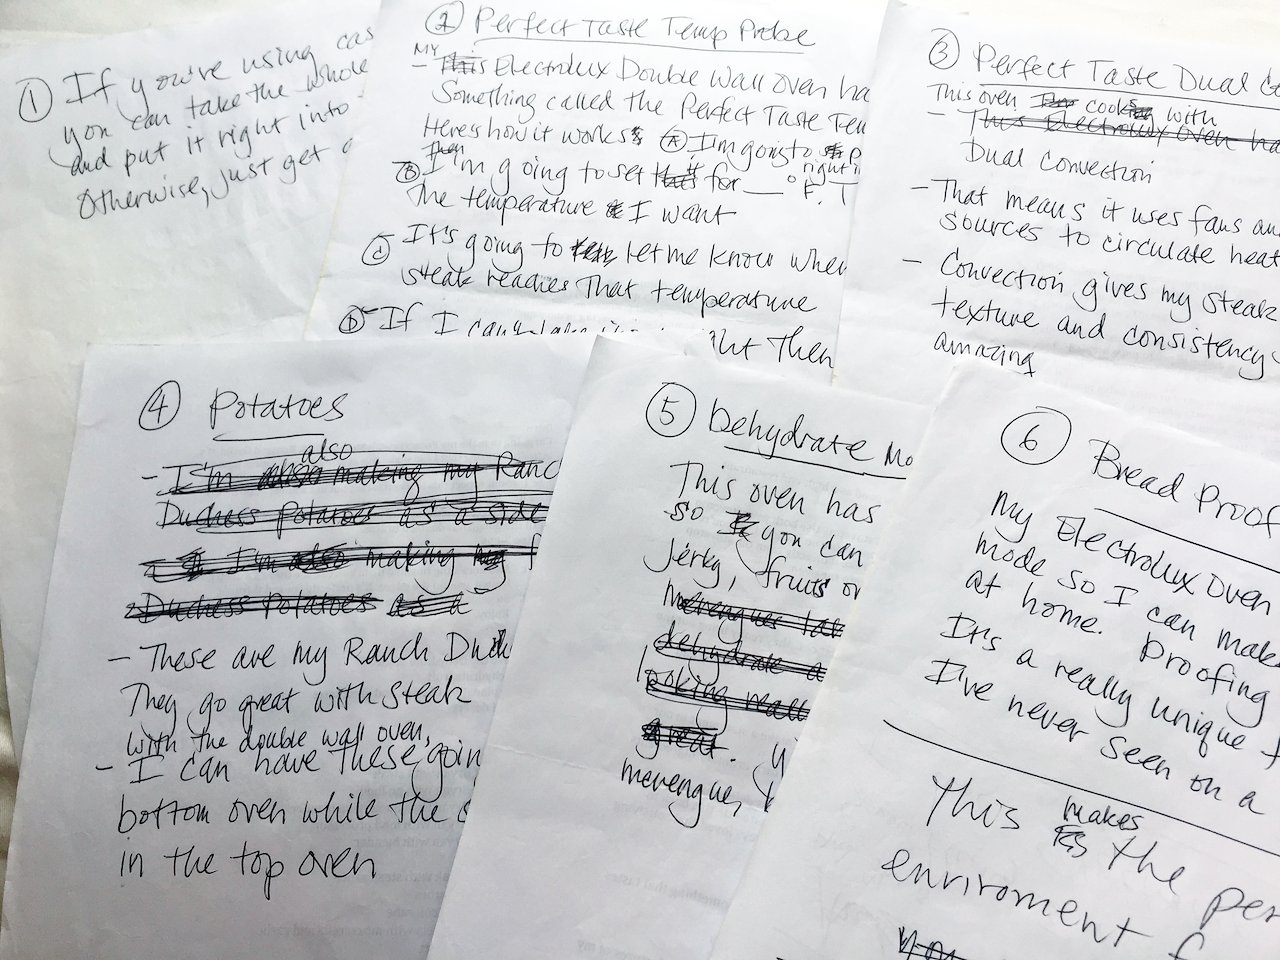 ① If you're using cas
you can take the whole
and put it right into
Otherwise, just get a
② Perfect Taste Temp Probe
MY
- This Electrolux Double Wall oven ha
Something called the Perfect Taste Tem
Here's how it works: Ⓐ I'm going to p
Then right i
Ⓑ I'm going to set for __° F. T
The temperature I want
Ⓒ It's going to let me know when
steak reaches That temperature
Ⓓ If I can't
ght Then
③ Perfect Taste Dual Co
This oven cooks with
- This Electrolux Oven ha
Dual convection
- That means it uses fans and
sources to circulate heat
- Convection gives my steak
texture and consistency
amazing
④ Potatoes
also
- I'm also making my Ranc
Duchess Potatoes as a side
I'm also making my f
Duchess Potatoes as a
- These are my Ranch Duch
They go great with steak
with the double wall oven,
- I can have these goin
bottom oven while the s
in the top oven
⑤ Dehydrate Mo
This oven has
so you can
jerky, fruits or
Merengues
dehydrate a
looking really
great. y
merengue,
⑥ Bread Proof
My Electrolux Oven
mode so I can make
at home. Proofing
It's a really unique f
I've never seen on a
makes
This is the per
enviroment f
You